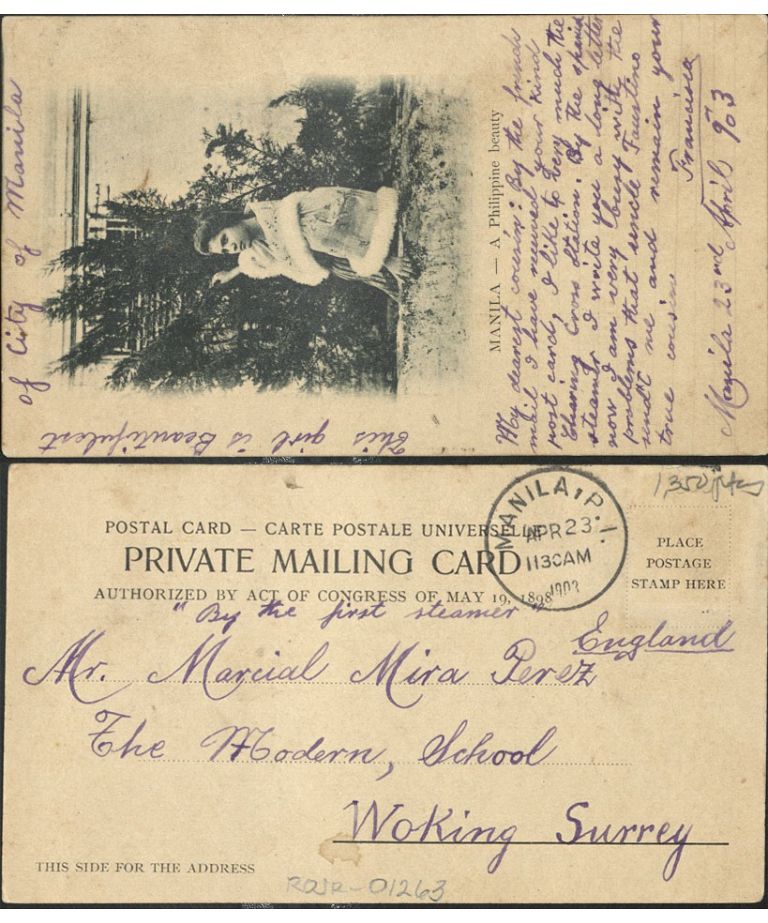 This girl is Beautifulest
of City of Manila
MANILA — A Philippine beauty
My dearest cousin: By the friends
mail I have received your kind
post card, I like to very much the
Charing Cross Station. By the spanish
steamer I write you a long letter
now I am very busy with the
problems that uncle Faustino
send't me and remain your
true cousine
Francisca
Manila 23nd April 903
1,350 ptas
POSTAL CARD — CARTE POSTALE UNIVERSELLE
PRIVATE MAILING CARD
AUTHORIZED BY ACT OF CONGRESS OF MAY 19, 1898
MANILA, P.I.
APR 23
1130AM
1903
PLACE
POSTAGE
STAMP HERE
"By the first steamer"
England
Mr. Marcial Mira Perez
The Modern, School
Woking Surrey
THIS SIDE FOR THE ADDRESS
ROJR-01263